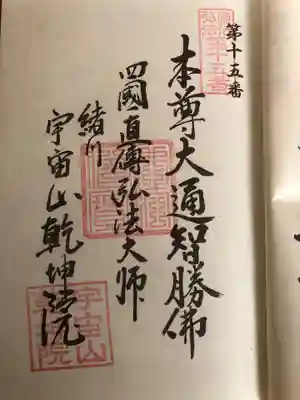 第十五番
本尊大通智勝佛
四國直傳弘法大師
緒川
宇宙山乾坤院